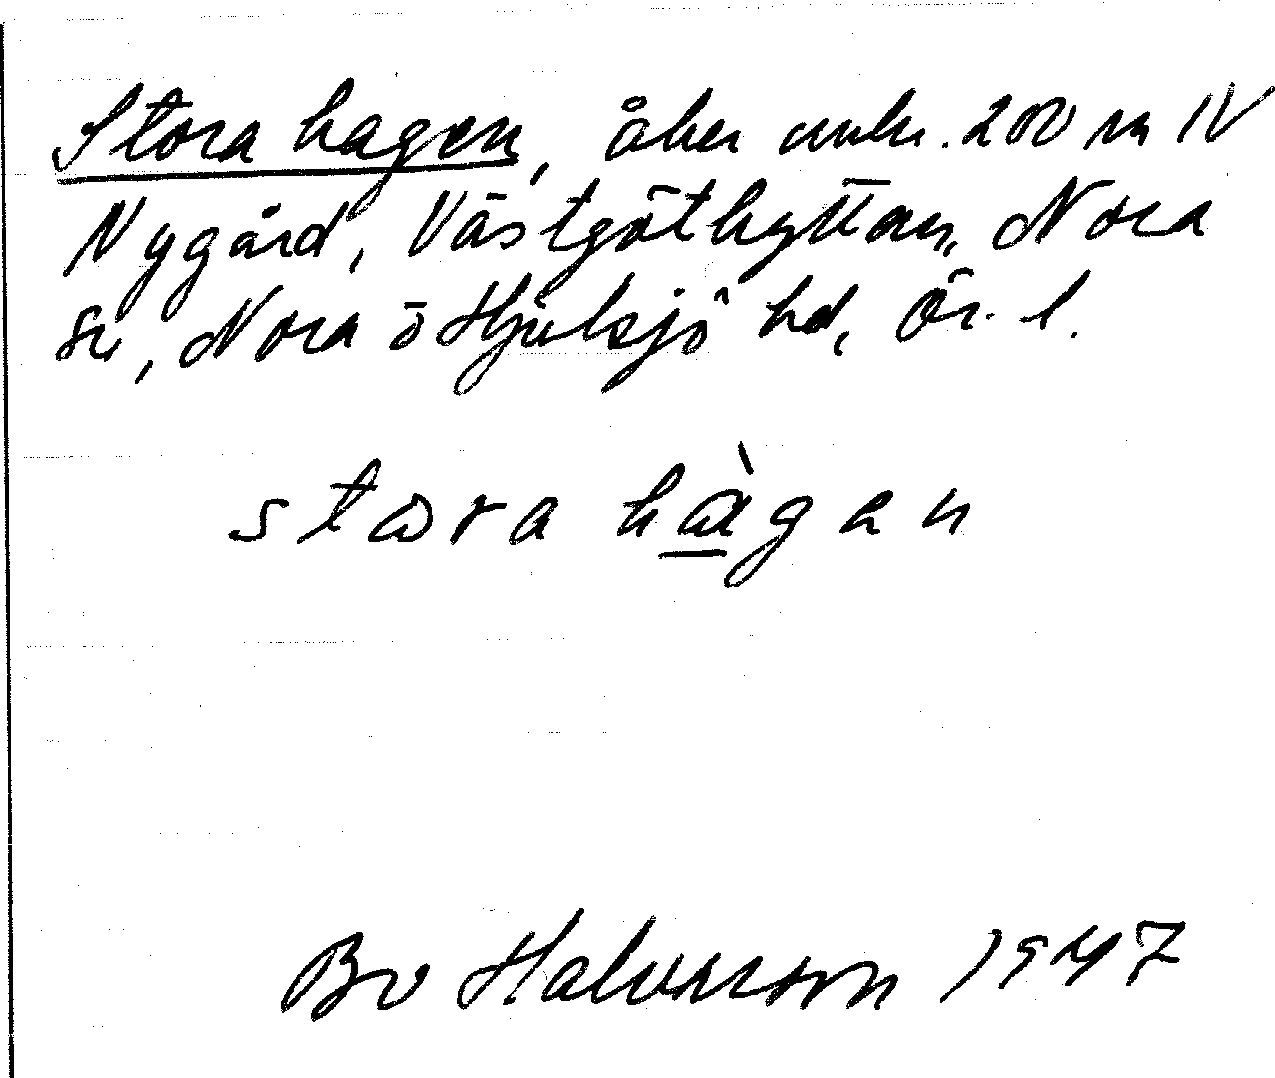 Stora hagen, åker omkr. 200 m N
Nygård, Västgöthyttan, Nora
sn, Nora o Hjulsjö hd, Ör. l.
stωra hàgan
Bo Halvarson 1947